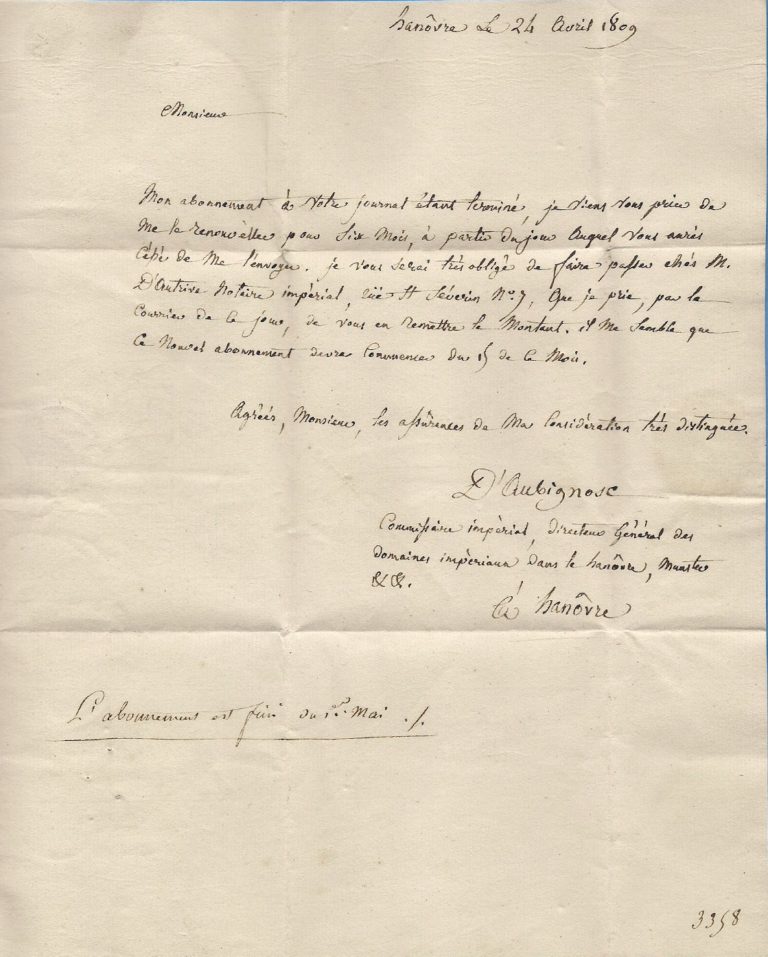 hanôvre Le 24 Avril 1809
Monsieur
Mon abonnement à Votre journal étant terminé, je viens vous prier de
Me le renouvèller pour Six Mois, à partir du jour Auquel Vous aurés
Céssé de Me l'envoyer. je vous serai très obligé de faire passer chés M.
D'Autrive Notaire impérial, rüe St Séverin No. 7, Que je prie, par le
Courrier de ce jour, de vous en remettre le Montant. il Me semble que
Ce Nouvel abonnement devra Commencer du 15 de ce Mois.
Agréés, Monsieur, les assûrences de Ma Considération très distinguée.
D'Aubignosc
Commissaire impérial, directeur Général des
domaines impériaux dans le hanôvre, Munster
&&.
à hanôvre
L' abonnement est fini du 1er. Mai ./.
3358